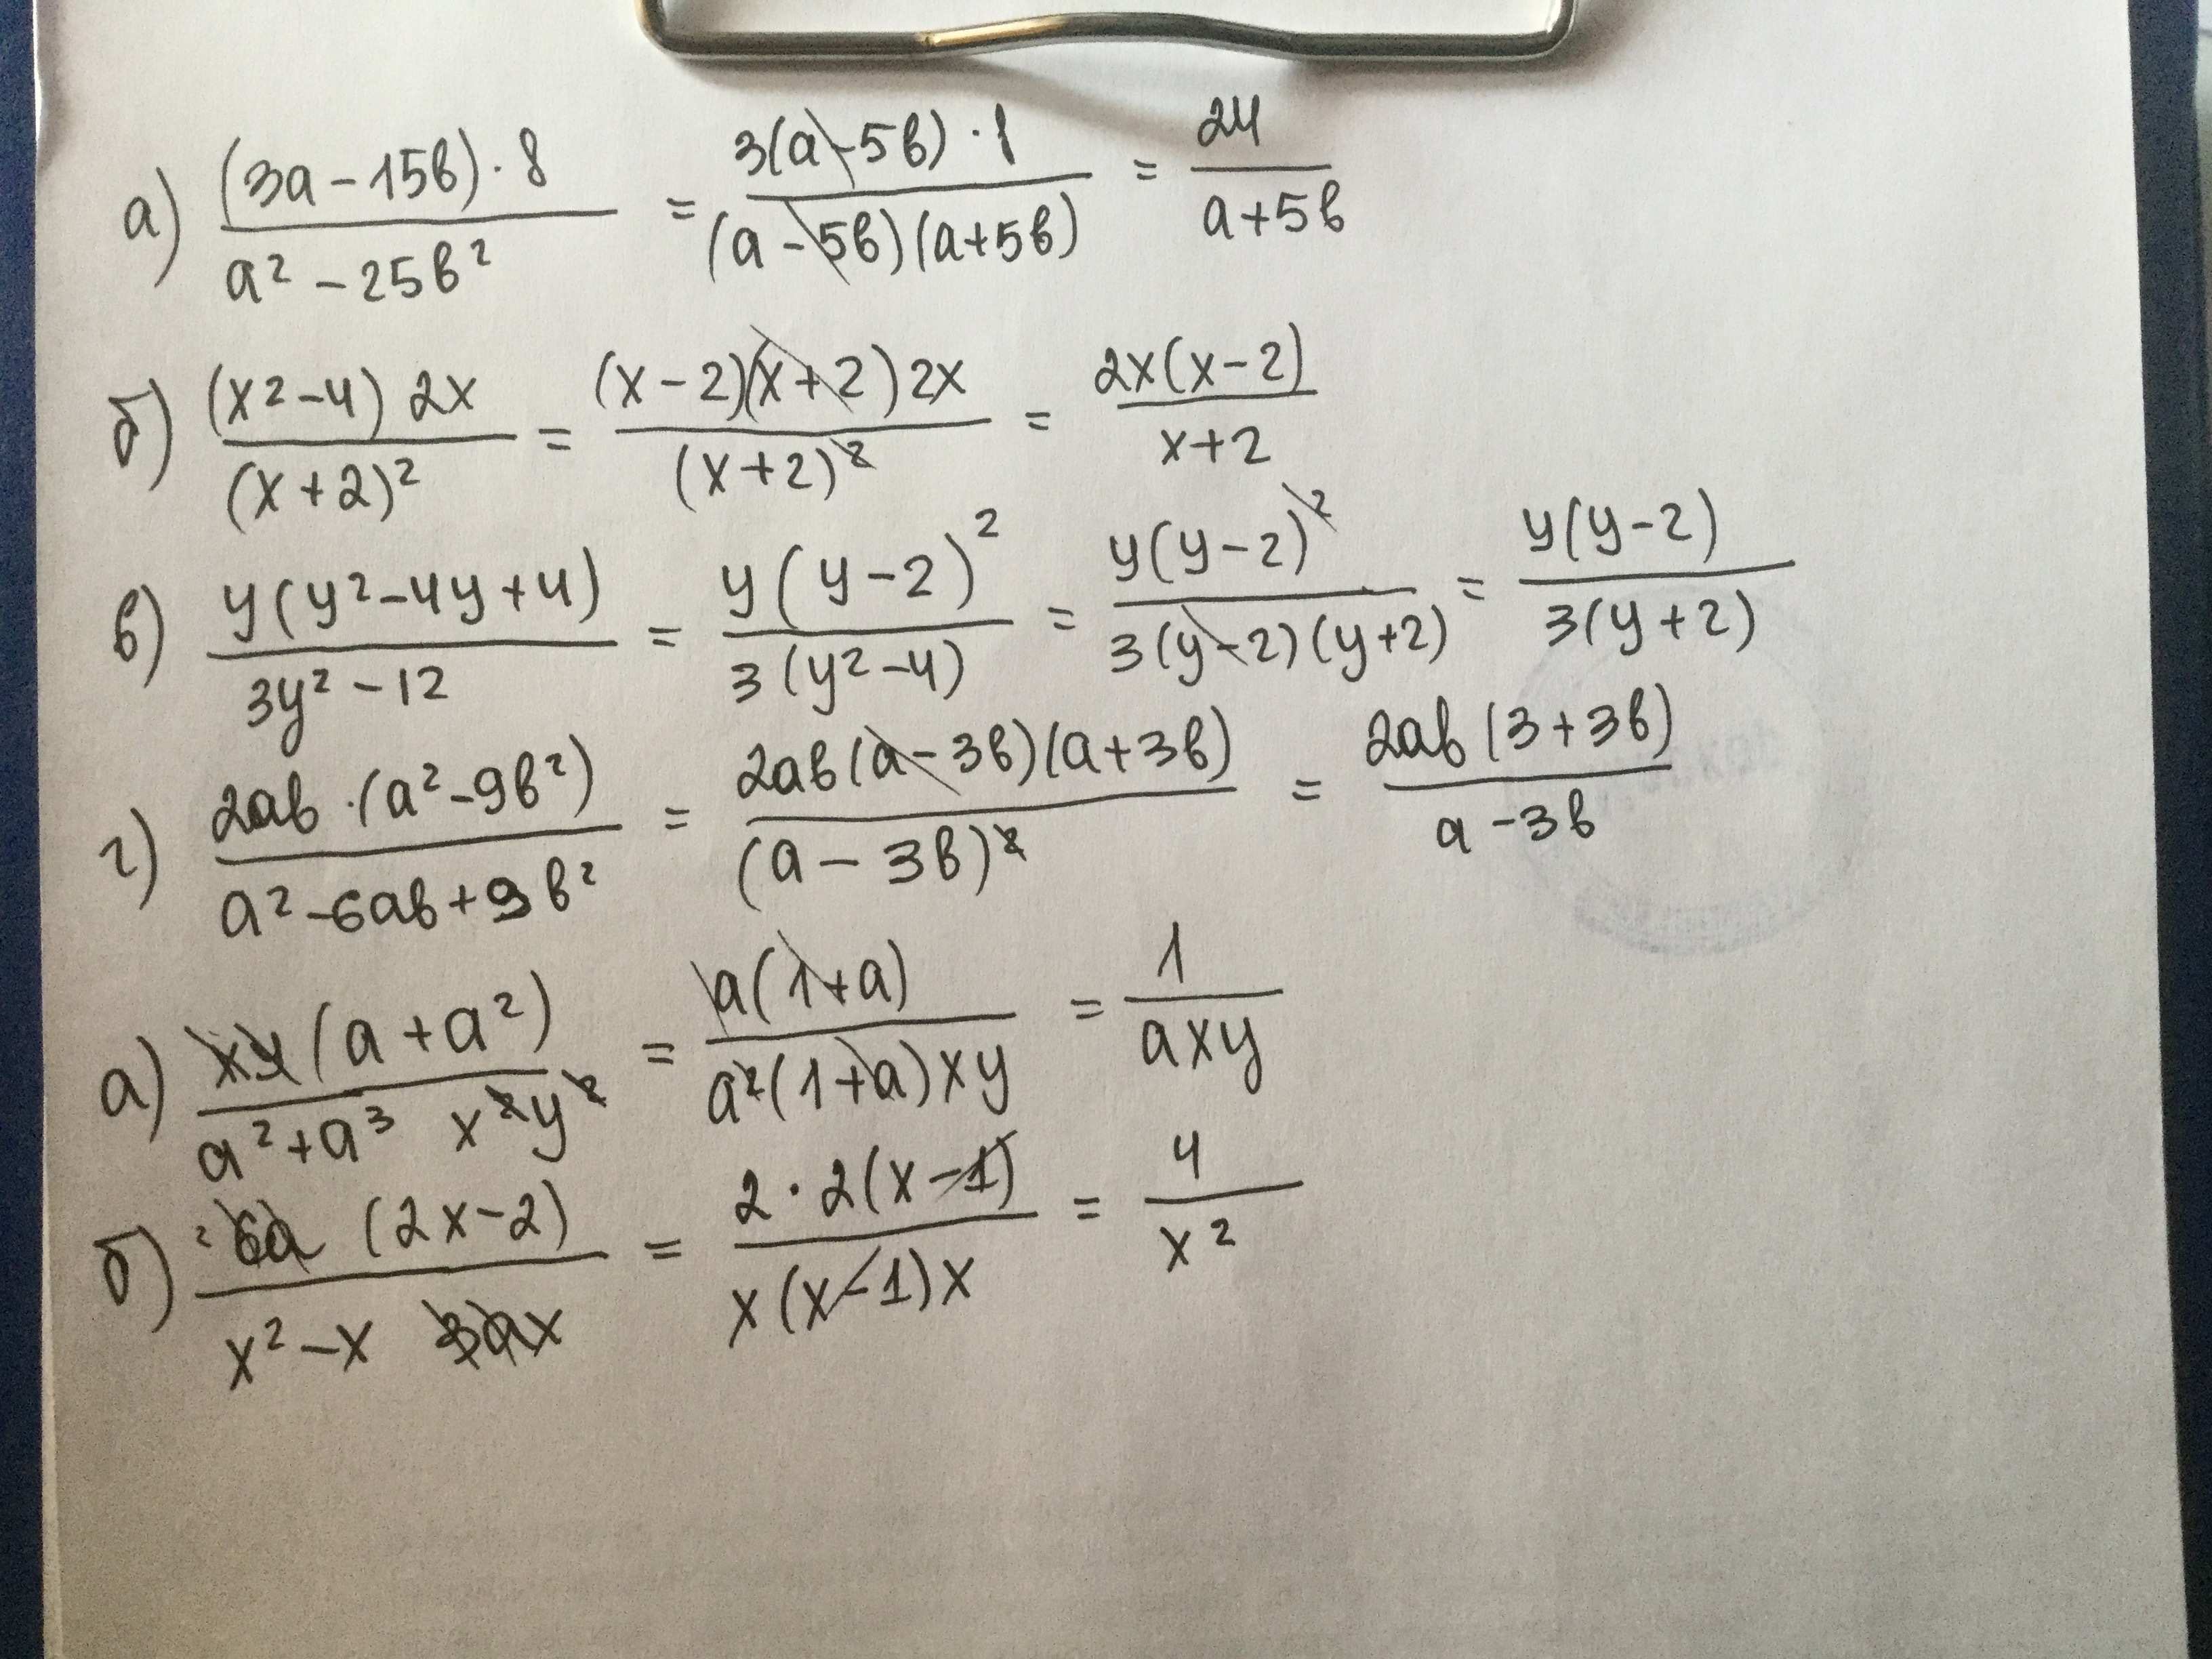 а) (3a-15b)·8 / a²-25b² = 3(a-5b)·8 / (a-5b)(a+5b) = 24 / a+5b
б) (x²-4) 2x / (x+2)² = (x-2)(x+2)2x / (x+2)² = 2x(x-2) / x+2
в) y(y²-4y+4) / 3y²-12 = y(y-2)² / 3(y²-4) = y(y-2)² / 3(y-2)(y+2) = y(y-2) / 3(y+2)
г) 2ab·(a²-9b²) / a²-6ab+9b² = 2ab(a-3b)(a+3b) / (a-3b)² = 2ab(3+3b) / a-3b
а) xy(a+a²) / a²+a³ x²y² = a(1+a) / a²(1+a)xy = 1 / axy
б) ² 6a (2x-2) / x²-x 3ax = 2·2(x-1) / x(x-1)x = 4 / x²